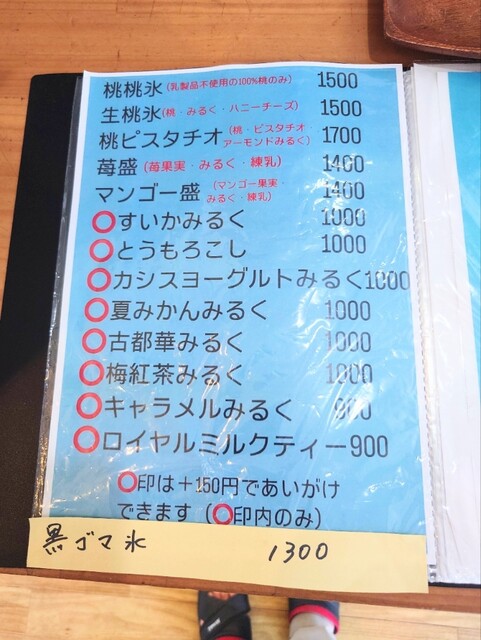 桃桃氷(乳製品不使用の100%桃のみ) 1500
生桃氷(桃・みるく・ハニーチーズ) 1500
桃ピスタチオ(桃・ピスタチオ・アーモンドみるく) 1700
苺盛(苺果実・みるく・練乳) 1400
マンゴー盛(マンゴー果実・みるく・練乳) 1400
○すいかみるく 1000
○とうもろこし 1000
○カシスヨーグルトみるく1000
○夏みかんみるく 1000
○古都華みるく 1000
○梅紅茶みるく 1000
○キャラメルみるく 900
○ロイヤルミルクティー900
○印は+150円であいがけ
できます(○印内のみ)
黒ゴマ氷 1300